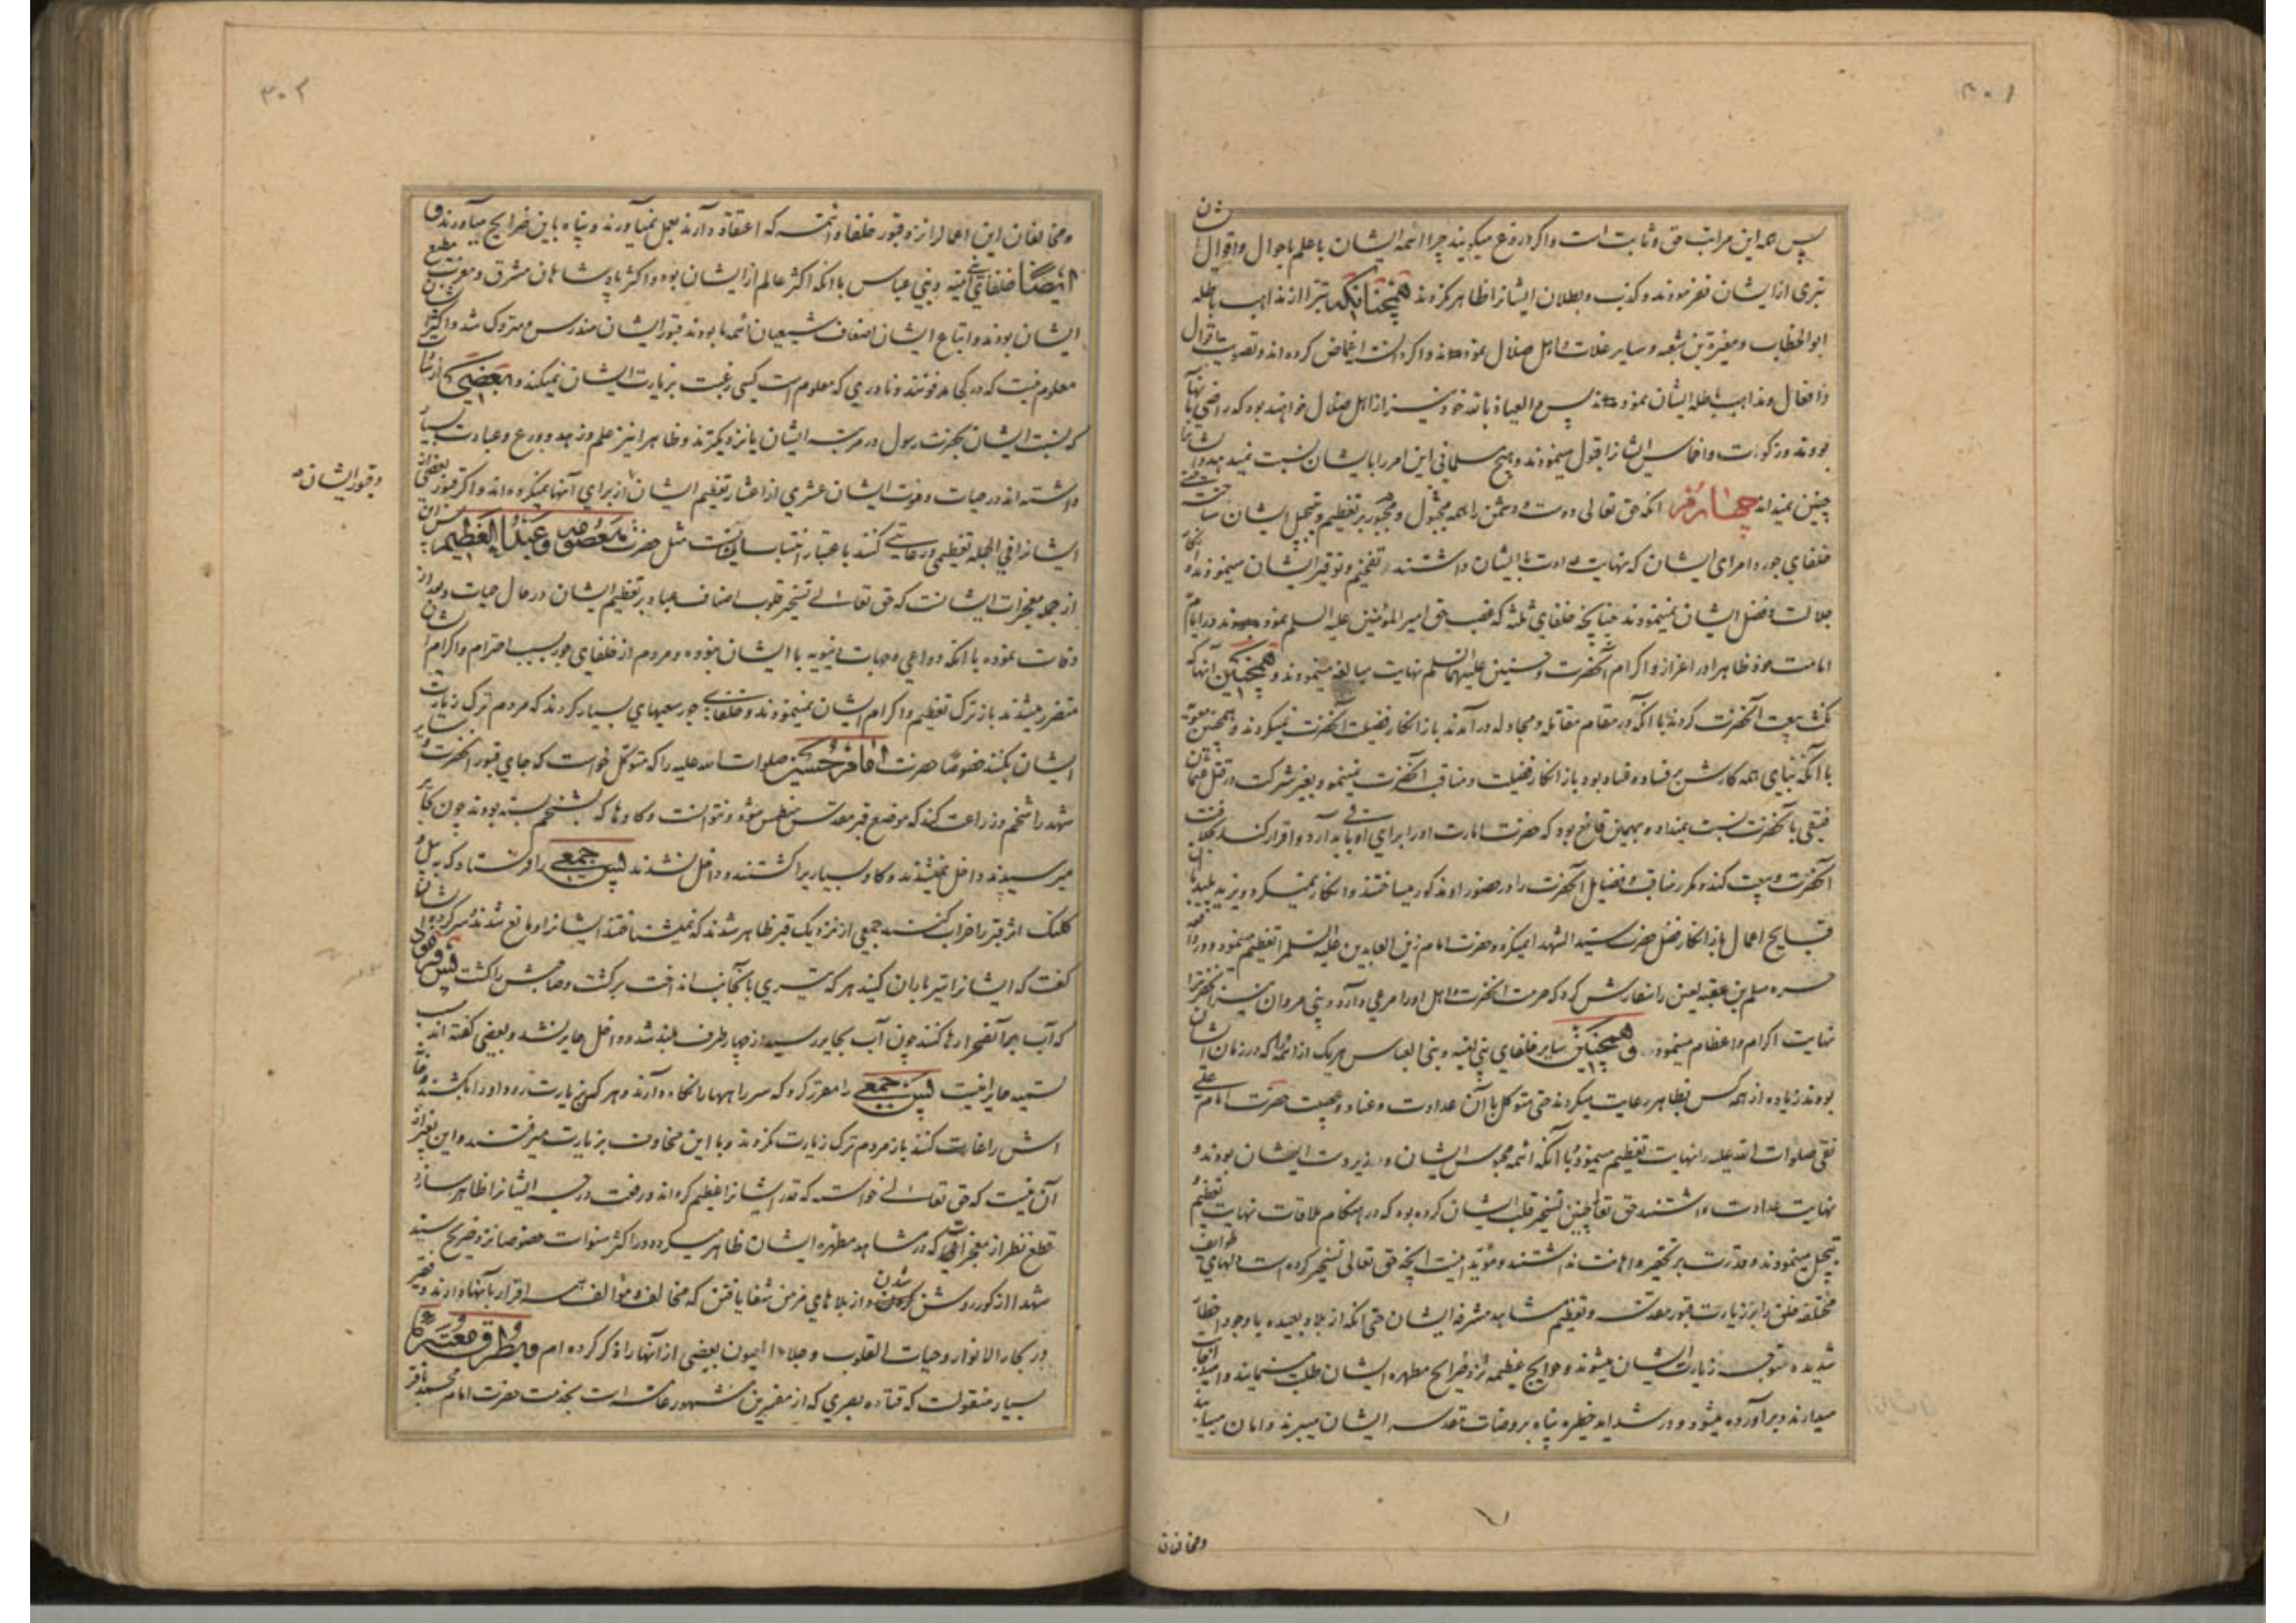 ۳۰۱
پس همه این مراتب حق و ثابت است و اگر دروغ میگویند چرا ائمه ایشان با علم باحوال و اقوال ایشان
تبری از ایشان نفرمودند و کذب و بطلان ایشانرا ظاهر نکردند همچنانکه تبرا از مذاهب باطله
ابوالخطاب و مغیرة بن شعبه و سایر غلات و اهل ضلال نمودند و اگر دانسته اغماض کرده اند و تصویب اقوال
و افعال و مذاهب باطله ایشان نمودند پس العیاذ بالله خود نیز از اهل ضلال خواهند بود که راضی بآنها
بودند و زکوت و اخماس ایشانرا قبول مینمودند و هیچ مسلمانی این امر را بایشان نسبت نمیدهد و ایشانرا
چنین نمیداند چهارم آنکه حق تعالی دوست و دشمن را همه مجبول و مجبور بر تعظیم و تبجیل ایشان ساخته حتی
خلفای جور و امرای ایشان که نهایت عداوت با ایشان داشتند تفخیم و توقیر ایشان مینمودند و انکار
جلالت و فضل ایشان نمینمودند چنانچه خلفای ثلثه که غصب حق امیر المؤمنین علیه السلم نمودند در ایام
امامت خود ظاهرا در اعزاز و اکرام آنحضرت و حسنین علیهما السلم نهایت مبالغه مینمودند و همچنین آنها که
نکث بیعت آنحضرت کردند با آنکه در مقام مقاتله و مجادله در آمدند باز انکار فضیلت آنحضرت نمیکردند و همچنین معویه
با آنکه بنیای همه کارش بر فساد و فساد بود باز انکار فضیلت و مناقب آنحضرت نمینمود و بغیر شرکت در قتل عثمان
فسقی بآنحضرت نسبت نمیداد و بهمین قانع بود که حضرت امارت او را برای او باید آرد و اقرار کند بخلافت
آنحضرت و بیعت کند و مکرر مناقب و فضایل آنحضرت را در حضور او مذکور میساختند و انکار نمیکرد و یزید پلید با
قبایح اعمال باز انکار فضل حضرت سید الشهدا نمیکرد و حضرت امام زین العابدین علیه السلم را تعظیم مینمود و در واقعه
حره مسلم بن عقبه لعین را سفارش کرد که حرمت آنحضرت و اهل او را مرعی دارد و بنی مروان نیز آنحضرترا
نهایت اکرام و اعظام مینمودند و همچنین سایر خلفای بنی امیه و بنی العباس هریک از ائمه را که در زمان ایشان
بودند زیاده از همه کس بظاهر رعایت میکردند حتی متوکل با آن عداوت و عناد و عصبیت حضرت امام علی
نقی صلوات الله علیه را نهایت تعظیم مینمود و با آنکه ائمه محبوس ایشان و در زیر دست ایشان بودند و
نهایت عداوت داشتند حق تعالی چنین تسخیر قلب ایشان کرده بود که در هنگام ملاقات نهایت تعظیم
تبجیل مینمودند و قدرت بر تحقیر و اهانت نداشتند و مؤید اینست آنچه حق تعالی تسخیر کرده است دلهای طوایف
مختلفه خلق را بر زیارت قبور مقدسه و تعظیم مشاهد مشرفه ایشان حتی آنکه از بلاد بعیده با وجود اخطار
شدیده متوجه زیارت ایشان میشوند و حوایج عظیمه نزد ضرایح مطهره ایشان طلب مینمایند و امید انجاح
میدارند و برآورده میشود و در شداید خطیره پناه بروضات مقدسه ایشان میبرند و امان مییابند
و مخالفان
۳۰۲
و مخالفان این اعمالرا نزد قبور خلفا و ائمه که اعتقاد دارند بعمل نمیآورند و پناه باین ضرایح میآورند و
ایضا خلفای بنی امیه و بنی عباس با آنکه اکثر عالم از ایشان بود و اکثر پادشاهان مشرق و مغرب مطیع
ایشان بودند و اتباع ایشان اضعاف شیعیان ائمه ما بودند قبور ایشان مندرس و متروک شد و اکثر ایشان
معلوم نیست که در کجا مدفونند و نادری که معلوم است کسی رغبت بزیارت ایشان نمیکند و بعضی از سادات
که نسبت ایشان بحضرت رسول در مرتبه ایشان یا نزدیکترند و ظاهرا نیز علم و زهد و ورع و عبادت بسیار
داشته اند در حیات و موت ایشان عشری از اعشار تعظیم ایشان از برای آنها نمیکرده اند و اگر قبور بعضی از
و قبور ایشان
ایشانرا فی الجمله تعظیمی و رعایتی کنند باعتبار انتساب بایشانست مثل حضرت معصومه و عبد العظیم پس این
از جمله معجزات ایشانست که حق تعالی تسخیر قلوب اصناف عباد بر تعظیم ایشان در حال حیات و بعد از
وفات نموده با آنکه دواعی و جهات دنیویه با ایشان نبوده و مردم از خلفای جور بسبب احترام و اکرام ایشان
متضرر میشدند باز ترک تعظیم و اکرام ایشان نمینمودند و خلفای جور سعیهای بسیار کردند که مردم ترک زیارت
ایشان بکنند خصوصا حضرت امام حسین صلوات الله علیه را که متوکل خواست که جای قبور آنحضرت و سایر
شهدا را شخم و زراعت کند که موضع قبر مقدس منطمس شود و نتوانست و گاوها که بشخم بسته بودند چون بحایر
میرسیدند داخل نمیشدند و گاو بسیاریرا کشتند و داخل نشدند پس جمعی را فرستاد که به بیل و
کلنک اثر قبر را خراب کنند جمعی از نزدیک قبر ظاهر شدند که نمیشناختند ایشانرا و مانع شدند سرکرده ایشان
گفت که ایشانرا تیر باران کنید هر که تیری بآنجانب انداخت برگشت و صاحبش را کشت پس فرمود
که آب بر آنحفر ارها کنند چون آب بحایر رسید از چهار طرف بلند شد و داخل حایر نشد و بعضی گفته اند سبب
تسمیه حایر اینست پس جمعی را مقرر کرد که سر راهها را نگاه دارند و هر که بزیارت رود او را بکشند و خانه
اش را غارت کنند باز مردم ترک زیارت نکردند و با این مخاوف بزیارت میرفتند و این بغیر از
آن نیست که حق تعالی خواسته که قدر ایشانرا عظیم گرداند و رفعت درجه ایشانرا ظاهر سازد
قطع نظر از معجزاتی که در مشاهد مطهره ایشان ظاهر میگردد در اکثر سنوات خصوصا نزد ضریح سید
شهدا از کور روشن شدن و از بلاهای مزمن شفا یافتن که مخالف و مؤالف همه اقرار بآنها دارند و فقیر
در بحار الانوار و حیات القلوب و جلاء العیون بعضی از آنها را ذکر کرده ام و بطرق معتبره
بسیار منقولست که قتاده بصری که از مفسرین مشهور عامه است بخدمت حضرت امام محمد باقر